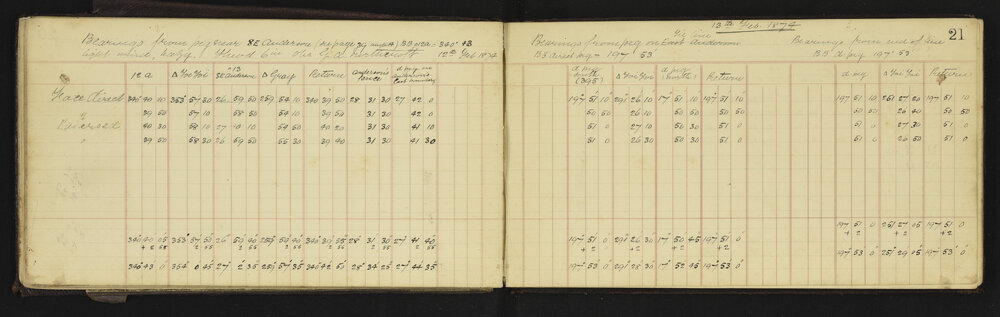 21
12th Feb. 1874
Bearings from peg near SE Anderson
light wind, hazy
12th Feb 1874
12 a Δ Yoi Yoi Return
Face Direct 340 40 10 353 57 30 26 59 50 259 54 10 340 39 50 28 31 30 27 42 0
39 50 57 10 58 50 54 10 39 50 31 30 42 0
Reversed 40 30 58 10 27 0 10 54 50 40 20 31 30 41 10
39 50 58 30 26 59 50 55 30 39 40 31 30 41 30
340 40 05 353 57 50 26 59 40 259 54 40 340 39 55 28 31 30 27 41 40
2 55 2 55 2 55 2 55 2 55 2 55 2 55
340 43 0 354 0 45 27 2 35 259 57 35 340 42 50 28 34 25 27 44 35
Bearings from peg on East Anderson
BS direct peg - 197° 53'
d peg north (395) Δ Yoi Yoi d peg (north) Return
197 51 10 291 26 10 17 51 10 197 51 10
50 50 26 10 50 50 50 50
51 0 27 10 50 30 51 0
51 0 26 30 50 30 51 0
197 51 0 291 26 30 17 50 45 197 51 0
+2 +2 +2
197 53 0 291 28 30 17 52 45 197 53 0
Bearings from end of line
BS d peg 197° 53'
d peg Δ Yoi Yoi Return
197 51 10 251 27 20 197 51 10
50 50 26 40 50 50
51 0 27 30 51 0
51 0 26 50 51 0
197 51 0 251 27 05 197 51 0
+2 +2 +2
197 53 0 251 29 05 197 53 0